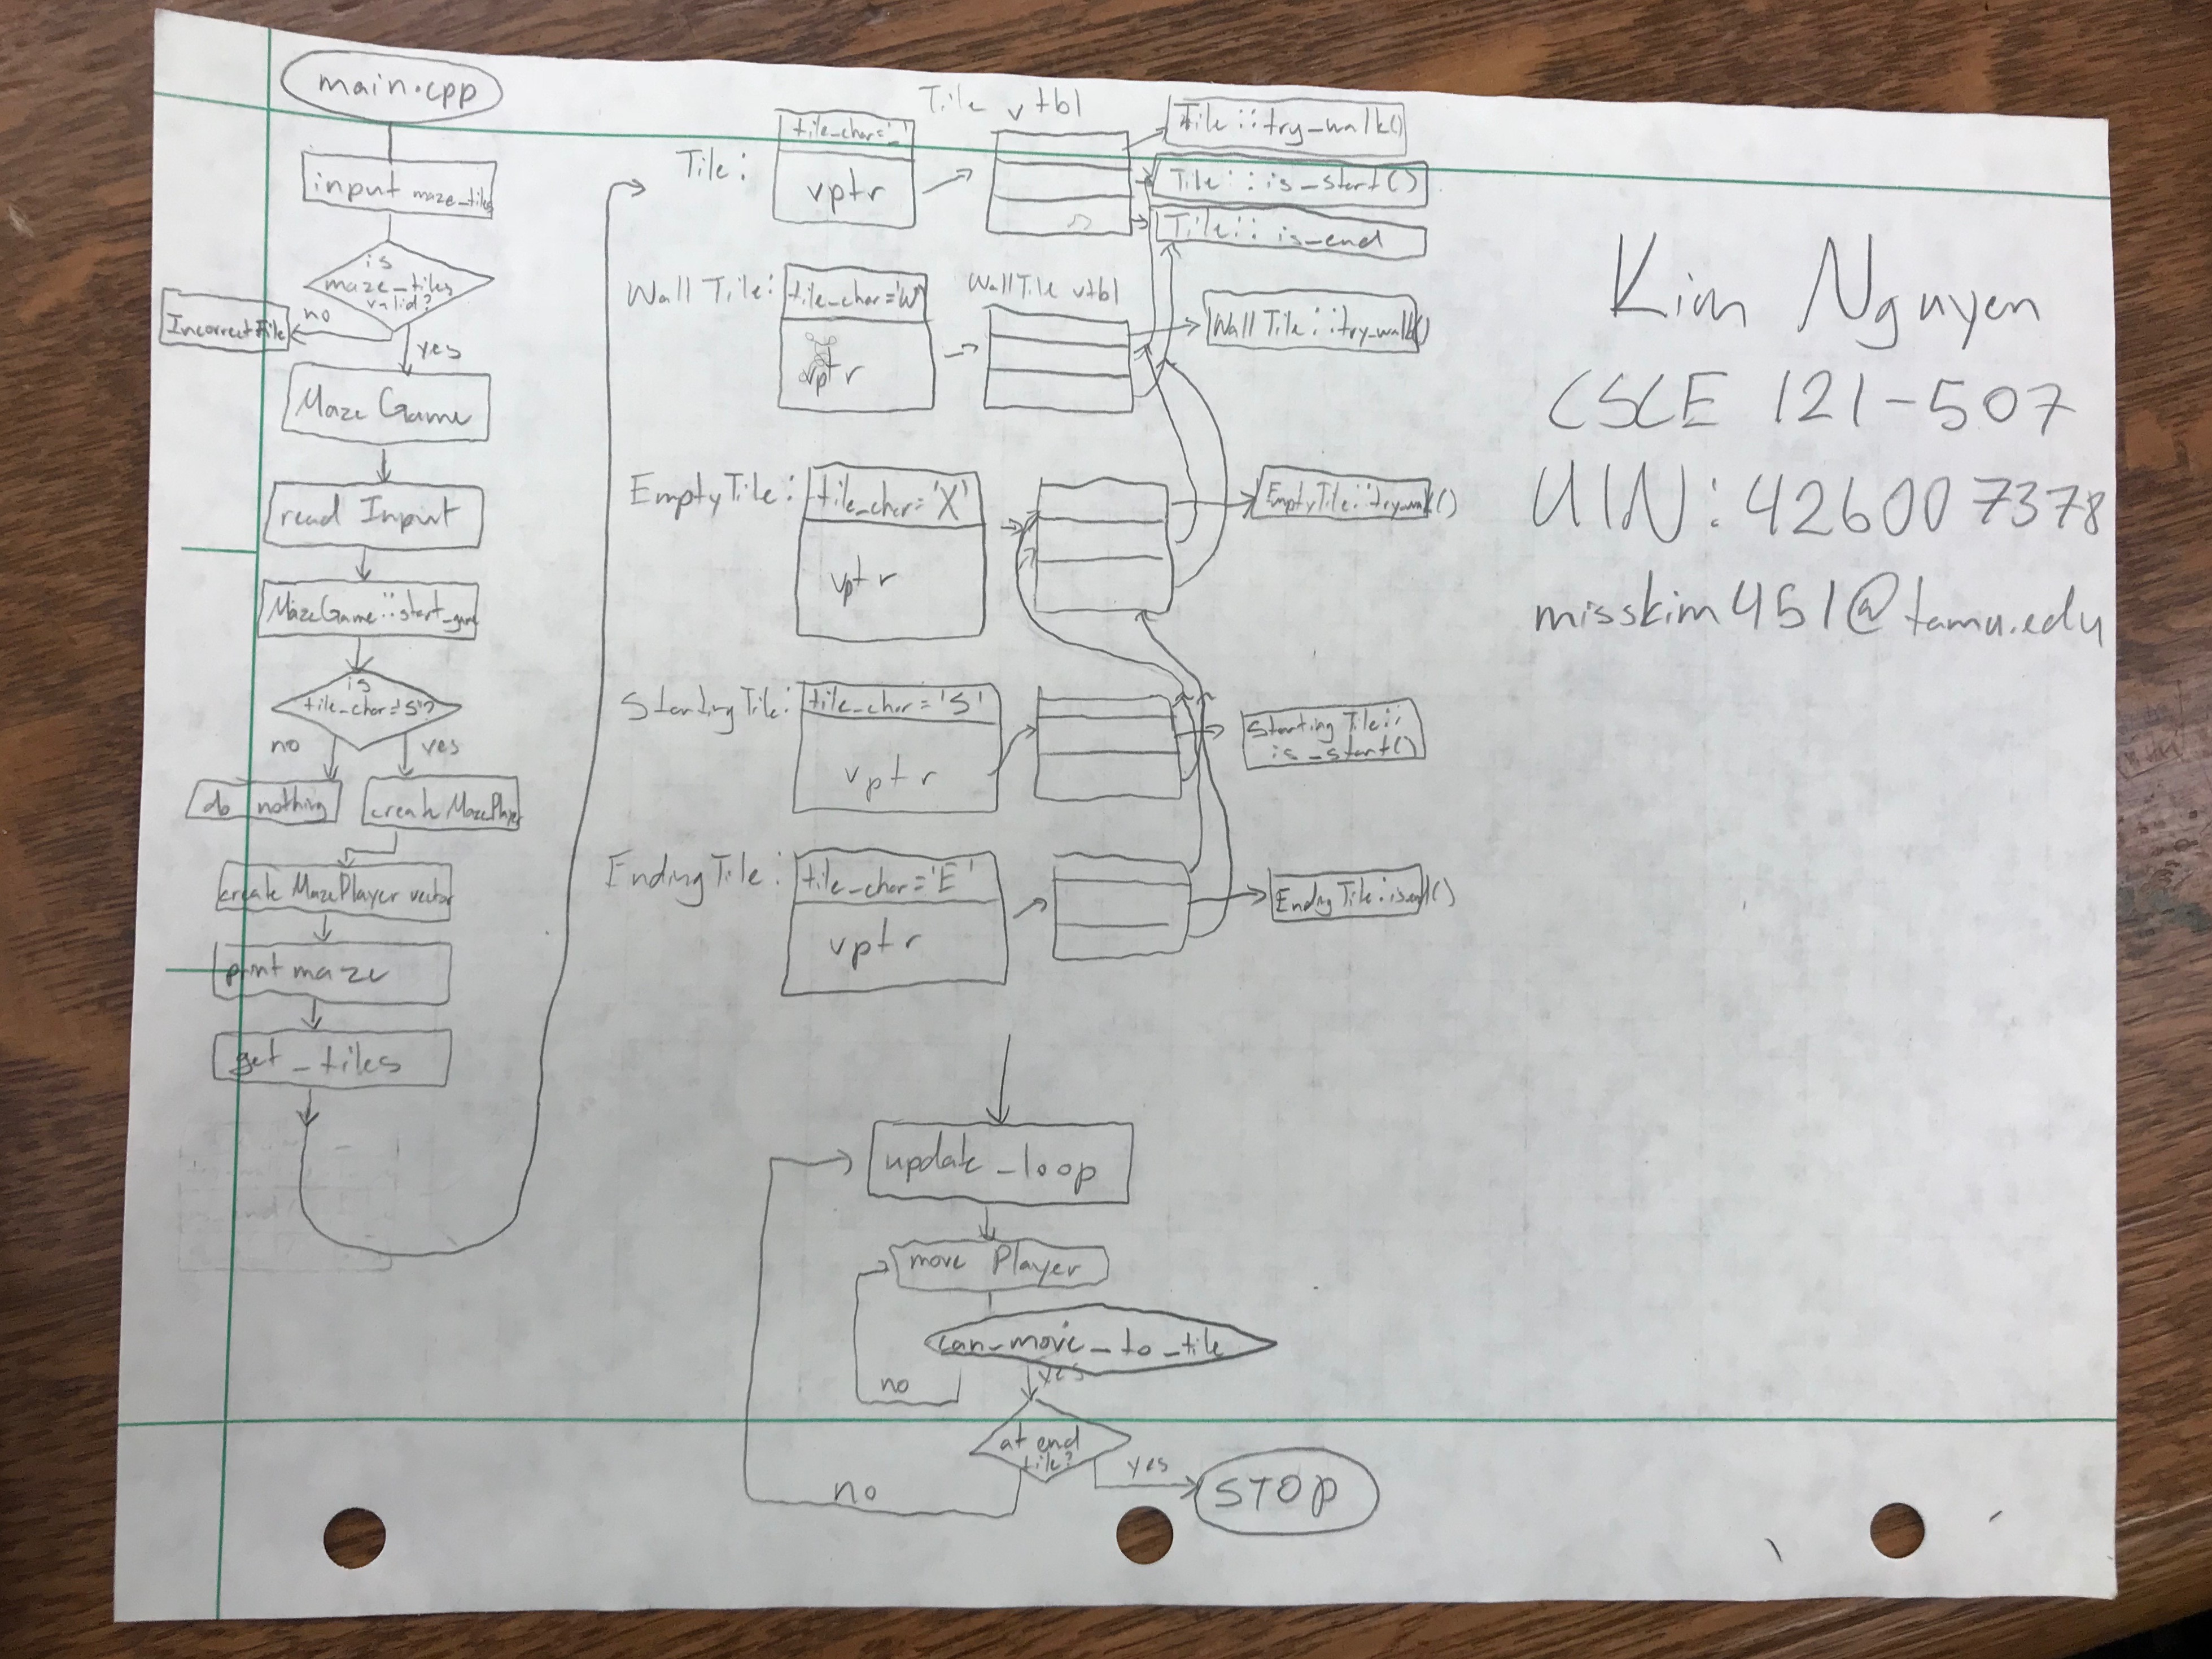 main.cpp
input maze_tiles
is
maze_tiles
valid?
no
IncorrectFile
yes
Maze Game
read Input
MazeGame::start_game
is
tile_char='S'?
no
yes
do nothing
create MazePlayer
create MazePlayer vector
print maze
get_tiles
Tile vtbl
Tile:
tile_char='_'
vptr
Tile::try_walk()
Tile::is_start()
Tile::is_end
Wall Tile:
tile_char='W'
vptr
WallTile vtbl
Wall Tile::try_walk()
EmptyTile:
tile_char='X'
vptr
EmptyTile::try_walk()
StartingTile:
tile_char='S'
vptr
Starting Tile::
is_start()
EndingTile:
tile_char='E'
vptr
Ending Tile::is_end()
update_loop
move Player
can_move_to_tile
no
yes
at end
tile?
no
yes
STOP
Kim Nguyen
CSCE 121-507
UIN: 426007378
misskim451@tamu.edu